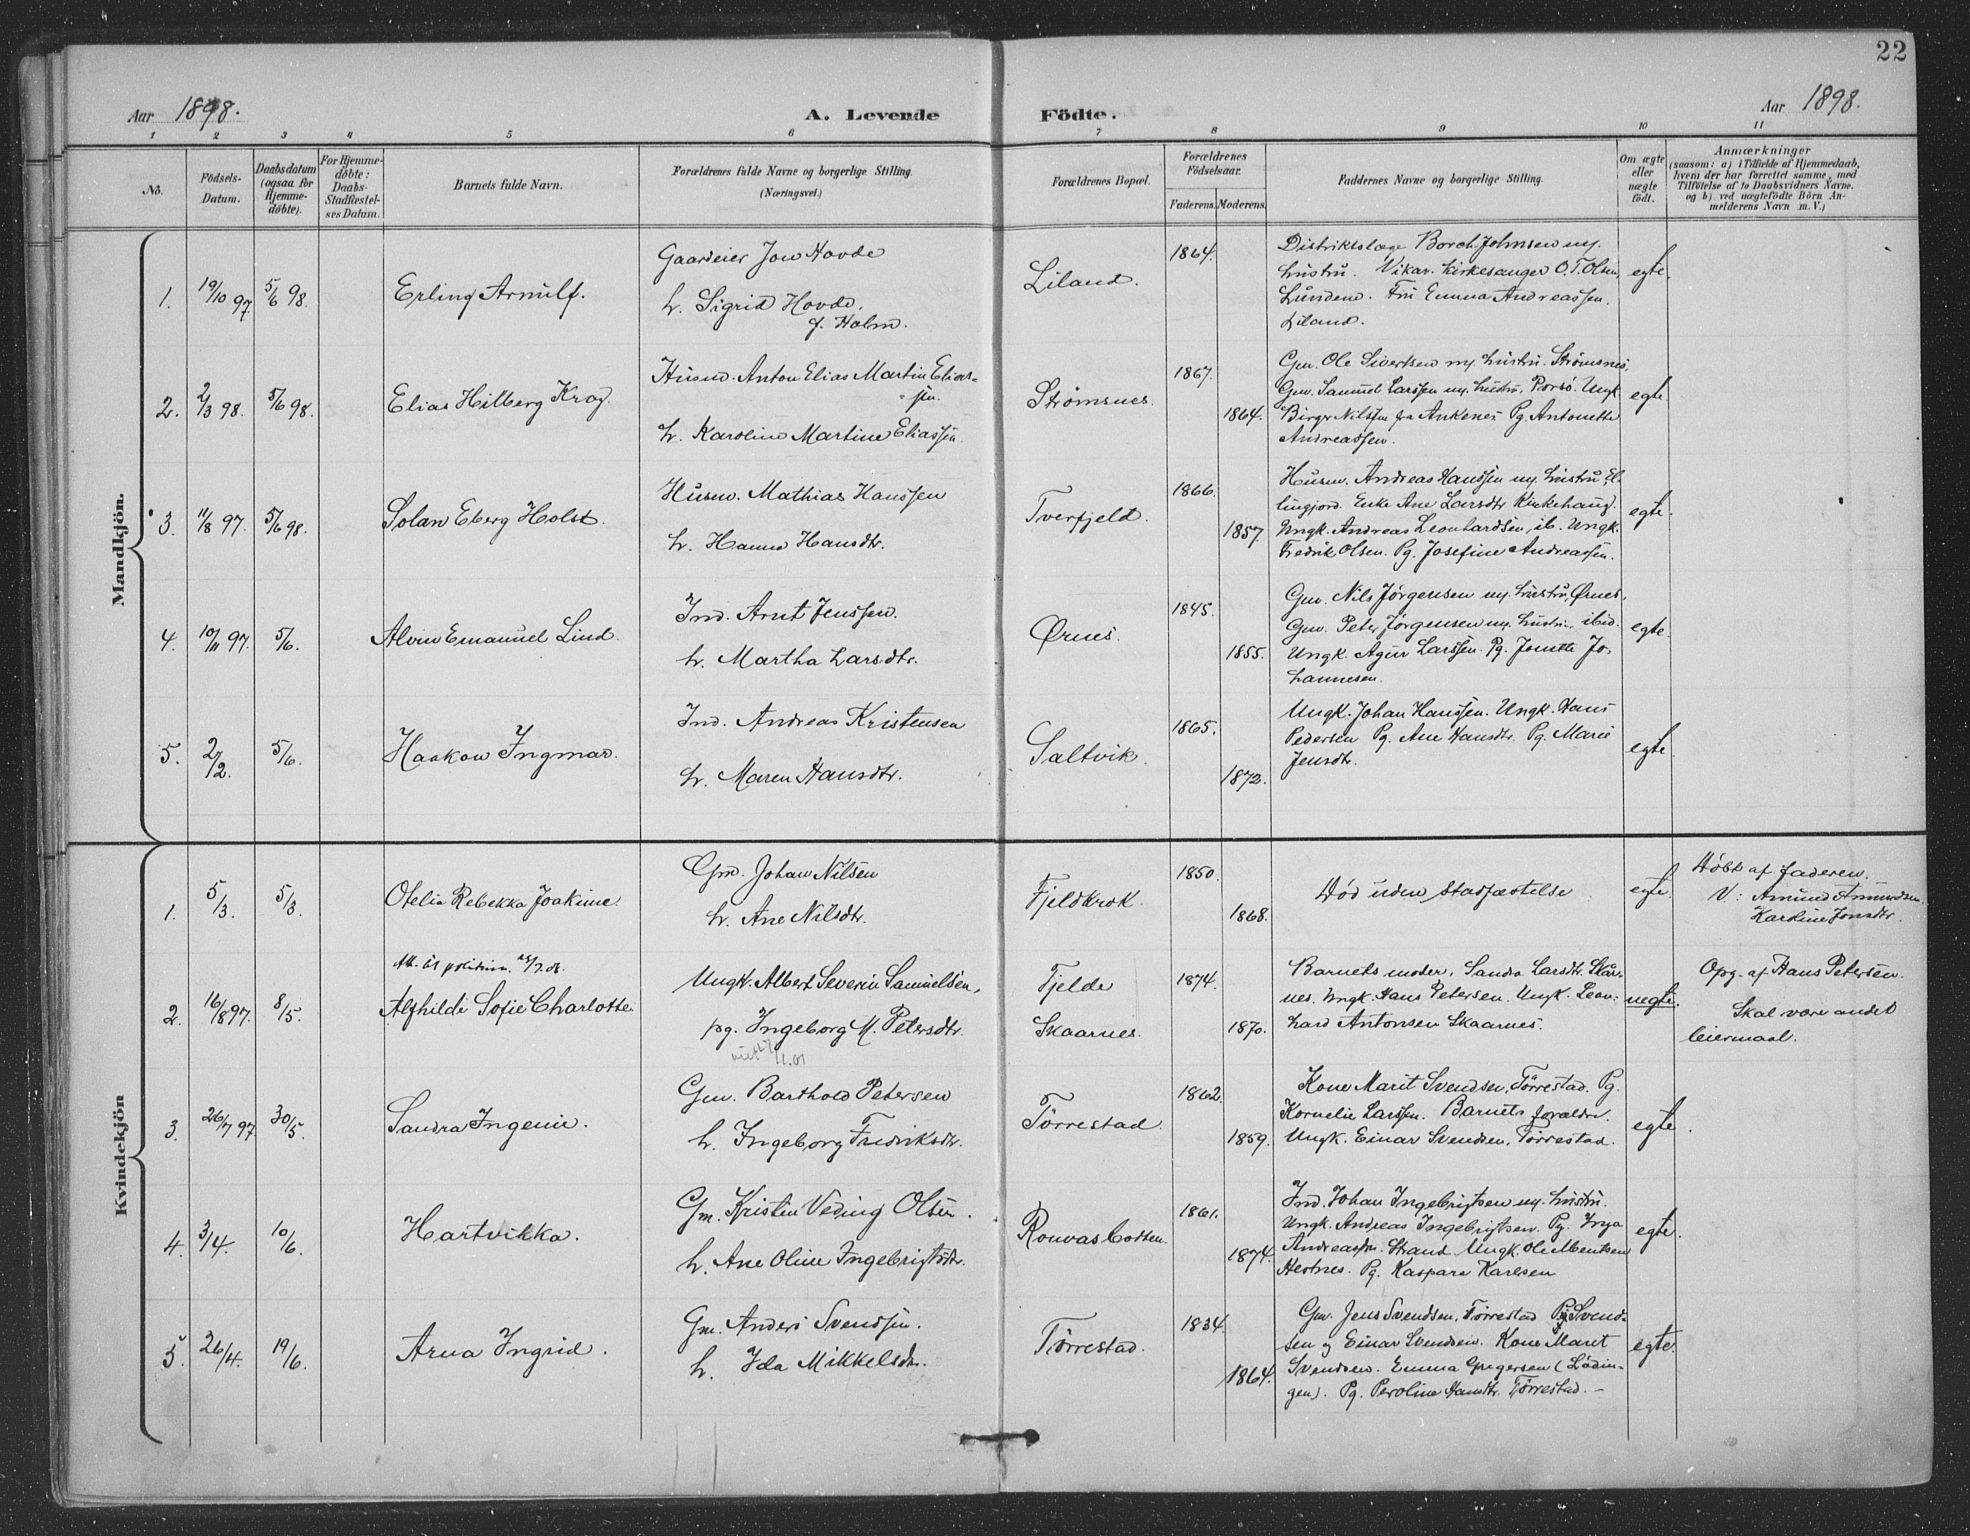 22
Aar 1898. A. Levende Födte. Aar 1898.
1 2 3 4 5 6 7 8 9 10 11
No. Födsels-Datum. Daabsdatum (ogsaa for Hjemme-döbte). For Hjemme-döbte: Daabs-Stadfæstel-ses Datum. Barnets fulde Navn. Forældrenes fulde Navne og borgerlige Stilling. (Næringsvei.) Forældrenes Bopæl. Forældrenes Födselsaar. Faderens. Moderens. Faddernes Navne og borgerlige Stilling. Om ægte eller uægte födt. Anmærkninger (saasom: a) i Tilfælde af Hjemmedaab, hvem der har forrettet samme, med Tilföielse af to Daabsvidners Navne, og b) ved uægtefödte Börn An-melderens Navn m. V.)
Mandkjön.
1. 19/10 97. 5/6 98. Erling Arnulf.
Gaardeier Jon Hovde
h. Sigrid Hovde,
f. Holm.
Liland. 1864.
Distriktslæge Borch Johnsen m.
hustru. Vikar. kirkesanger O. T. Olsen,
Lundene. Fru Emma Andreassen,
Liland.
egte.
2. 2/3 98. 5/6 98. Elias Hilberg Krog.
Husm. Anton Elias Martin Elias-
sen.
h. Karoline Martine Eliassen.
Strømsnes. 1867. 1864.
Gm. Ole Sivertsen m. hustru. Strømsnes,
Gm. Samuel Larssen m. hustru, Porsø. Ungk.
Birger Nilssen fra Ankenes Pg. Antonette
Andreassen.
egte
3. 11/8 97. 5/6 98. Solan Eberg Holst.
Husm. Mathias Hanssen
h. Hanna Hansdtr.
Tverfjeld. 1866. 1857.
Husm. Andreas Hanssen m. hustru El-
lingjord. Enke Ane Larsdtr Kirkehaug.
Ungk. Andreas Leonhardsen, ib. Ungk.
Fredrik Olsen. Pg. Josefine Andreassen.
egte.
4. 10/11 97. 5/6. Alvin Emanuel Lind.
Ind. Arnt Jenssen.
h. Martha Larsdtr.
Ørnes. 1845. 1855.
Gm. Nils Jørgensen m. hustru, Ørnes,
Gm. Peter Jørgensen m. hustru, ibid.
Ungk. Agur Larssen. Pg. Jonette Jo-
hannesen.
egte.
5. 2/2. 5/6. Haakon Ingmar.
Ind. Andreas Kristensen
h. Maren Hansdtr.
Saltvik. 1865. 1872.
Ungk. Johan Hanssen. Ungk. Hans
Pedersen Pg. Ane Hansdtr. Pg. Marie
Jensdtr.
egte.
Kvindekjön
1. 5/3. 5/3. Otelia Rebekka Joakime.
Gm. Johan Nilsen
h. Ane Nilsdtr.
Fjeldkrok. 1850. 1868.
Død uden stadfæstelse
egte.
Døbt af faderen.
V: Amund Amundsen
Karoline Jonsdtr.
2. 16/8 97. 8/5. Alfhilde Sofie Charlotte
Ungk. Albert Severin Samuelsen,
pg. Ingeborg M. Petersdtr.
Fjelde
Skaarnes. 1874. 1870.
Barnets moder, Sandra Larsdtr. Skår-
nes. Ungk. Hans Petersen. Ungk. Leon-
hard Antonsen Skaarnes.
uegte.
Opg. af Hans Petersen.
Skal være andet
leiermaal.
3. 26/7 97. 30/5. Sandra Ingenie.
Gm. Barthold Petersen
h. Ingeborg Fredriksdtr.
Tørrestad. 1862. 1859.
Kone Marit Svendsen, Tørrestad. Pg.
Kornelie Larssen. Barnets forældre
Ungk. Einar Svendsen, Tørrestad.
egte.
4. 3/4. 10/6. Hartvikka.
Gm. Kristen Veding Olsen.
h. Ane Oline Ingebrigtsdtr.
Ronvasbotten. 1861. 1874.
Ind. Johan Ingebrigtsen m. hustru.
Ungk. Andreas Ingebrigtsen. Pg. Inga
Andreassen. Strand Ungk. Ole Mentsen
Hestnes. Pg. Kaspara Karlsen
egte.
5. 26/4. 19/6. Arna Ingrid.
Gm. Anders Svendsen.
h. Ida Mikkelsdtr.
Tørrestad. 1834. 1864.
Gm. Jens Svendsen, Tørrestad Svend-
sen og Einar Svendsen. Kone Maret
Svendsen. Emma Gregersen (Lødin-
gen). Pg. Peroline Hansdtr. Tørrestad.
egte.